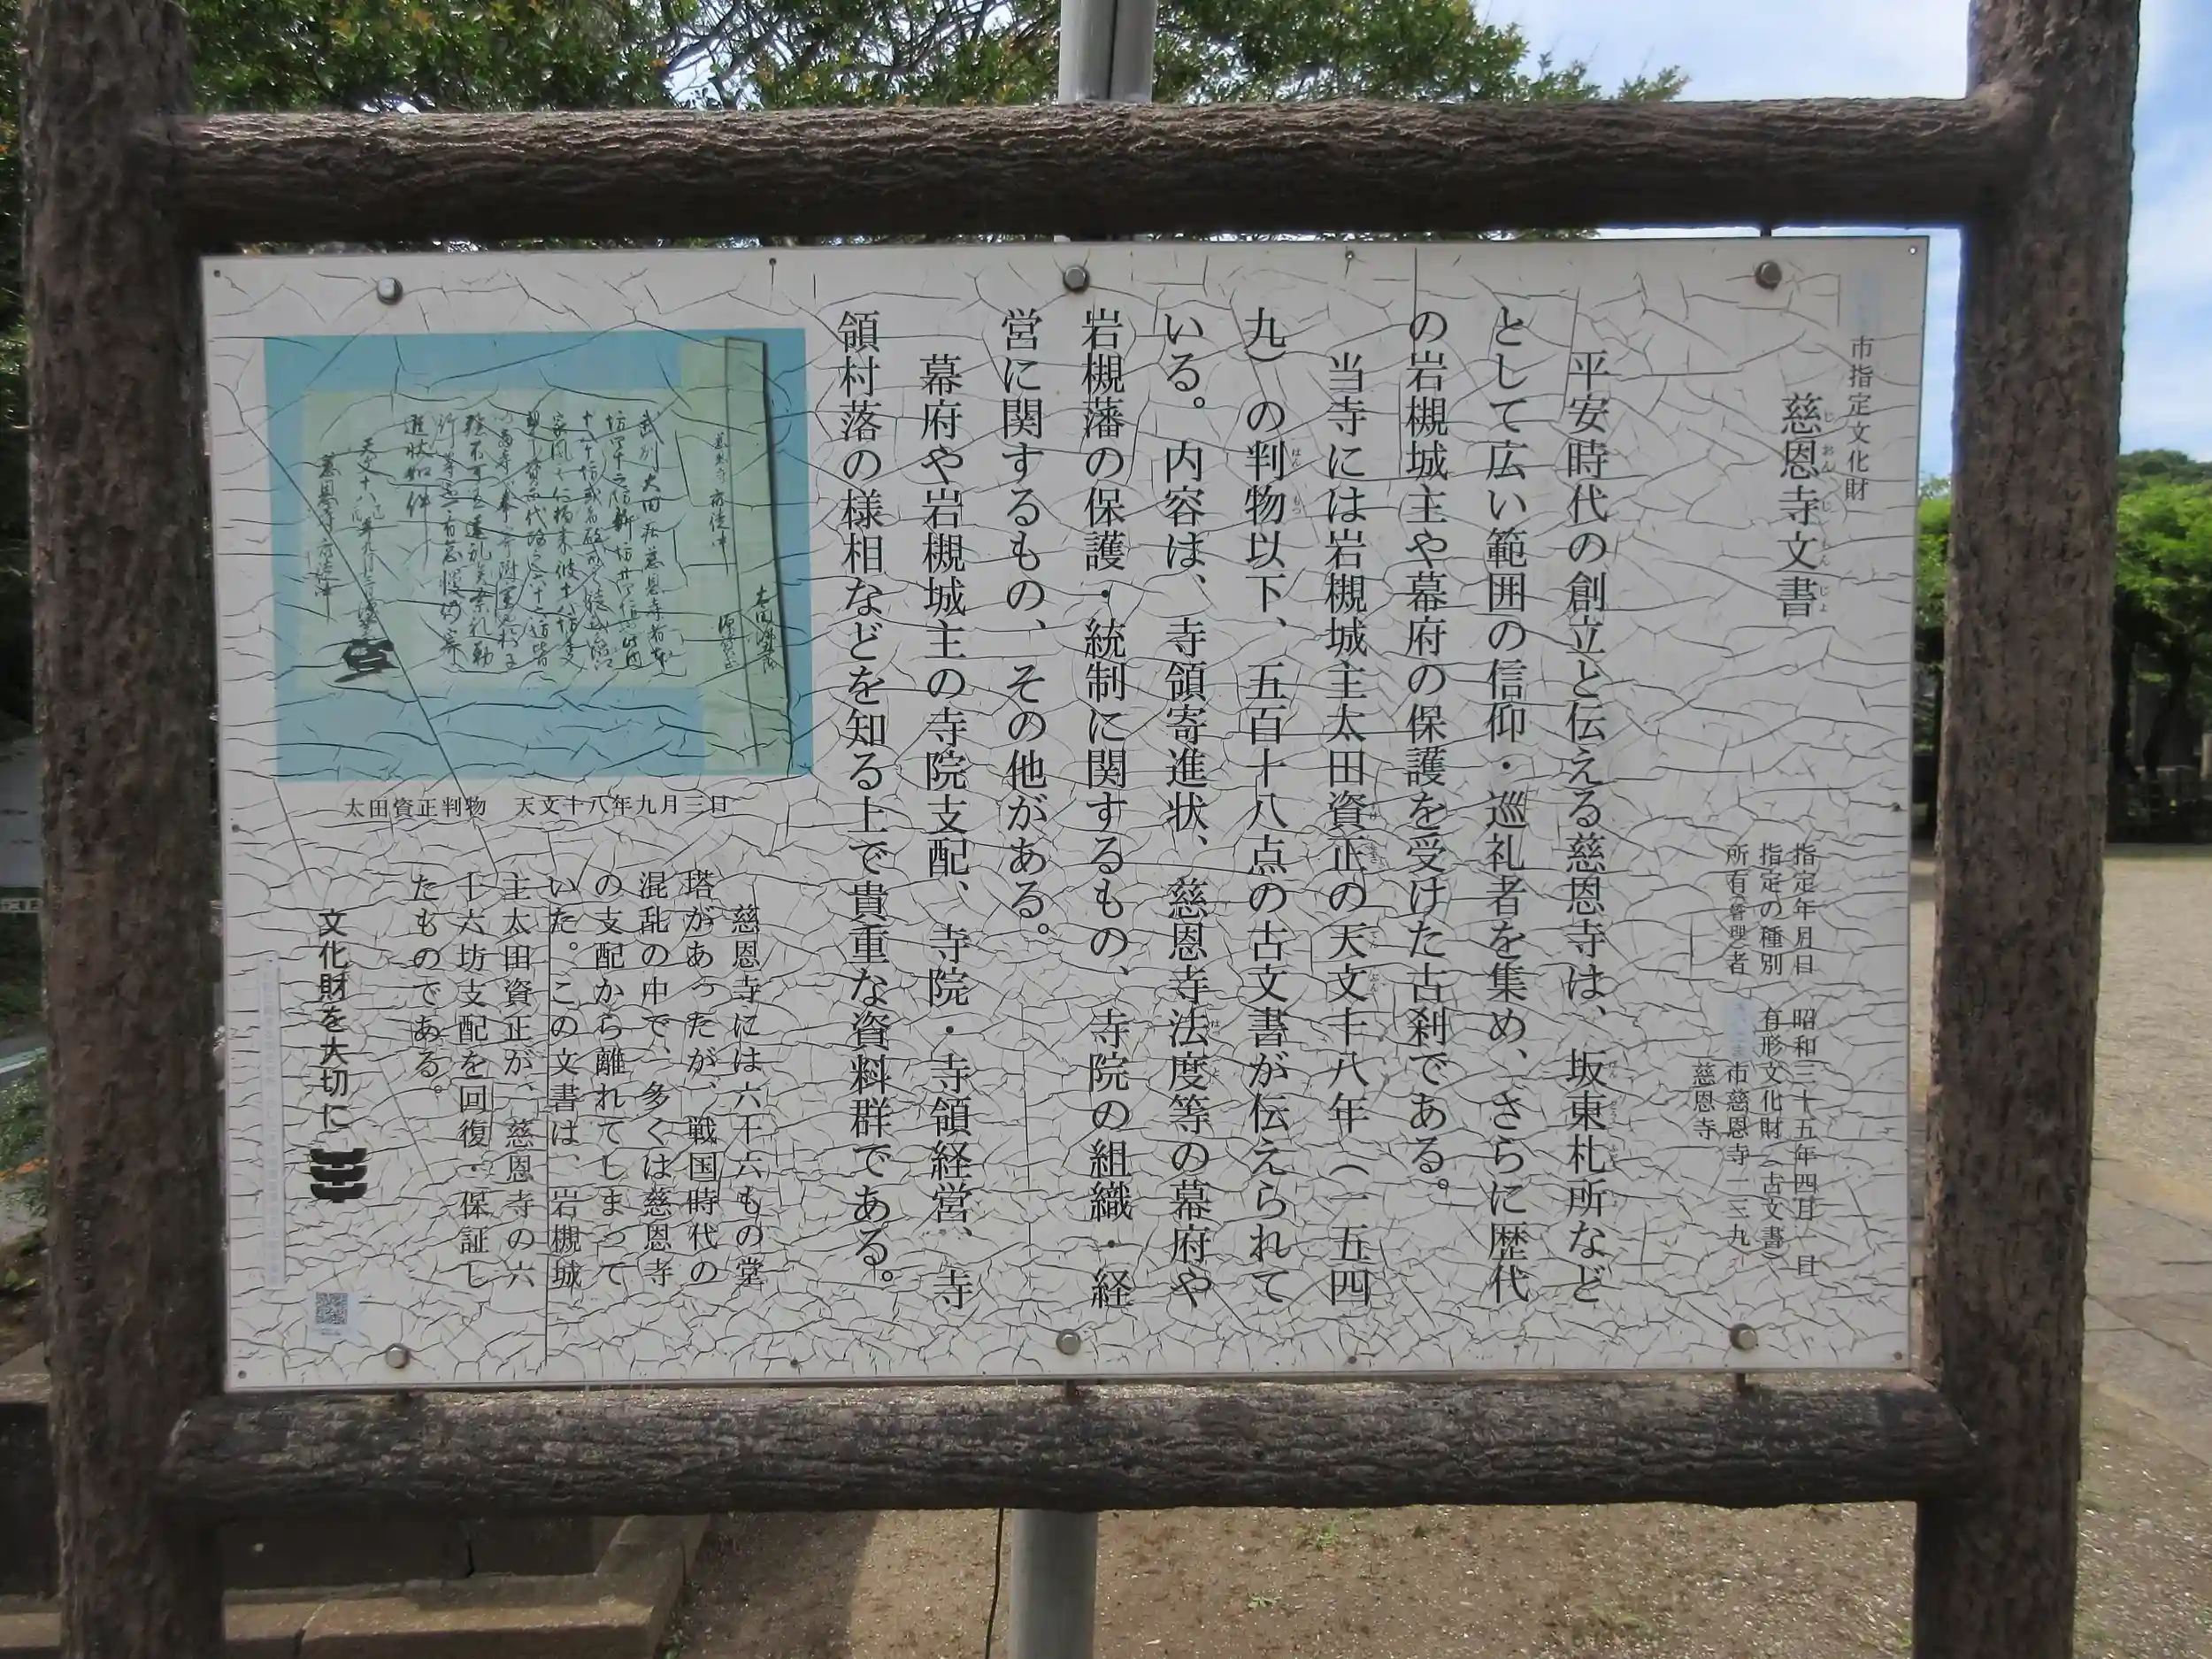 市指定文化財
慈恩寺文書
じおんじもんじょ
指定年月日 昭和三十五年四月一日
指定の種別 有形文化財（古文書）
所有(管理)者 市慈恩寺一三九
慈恩寺
平安時代の創立と伝える慈恩寺は、坂東札所など
として広い範囲の信仰・巡礼者を集め、さらに歴代
の岩槻城主や幕府の保護を受けた古刹である。
当寺には岩槻城主太田資正の天文十八年（一五四
九）の判物以下、五百十八点の古文書が伝えられて
はんもつ
いる。内容は、寺領寄進状、慈恩寺法度等の幕府や
岩槻藩の保護・統制に関するもの、寺院の組織・経
営に関するもの、その他がある。
幕府や岩槻城主の寺院支配、寺院・寺領経営、寺
領村落の様相などを知る上で貴重な資料群である。
太田資正判物 天文十八年九月三日
慈恩寺には六十六もの堂
塔があったが、戦国時代の
混乱の中で、多くは慈恩寺
の支配から離れてしまって
いた。この文書は、岩槻城
主太田資正が、慈恩寺の六
十六坊支配を回復・保証し
たものである。
文化財を大切に